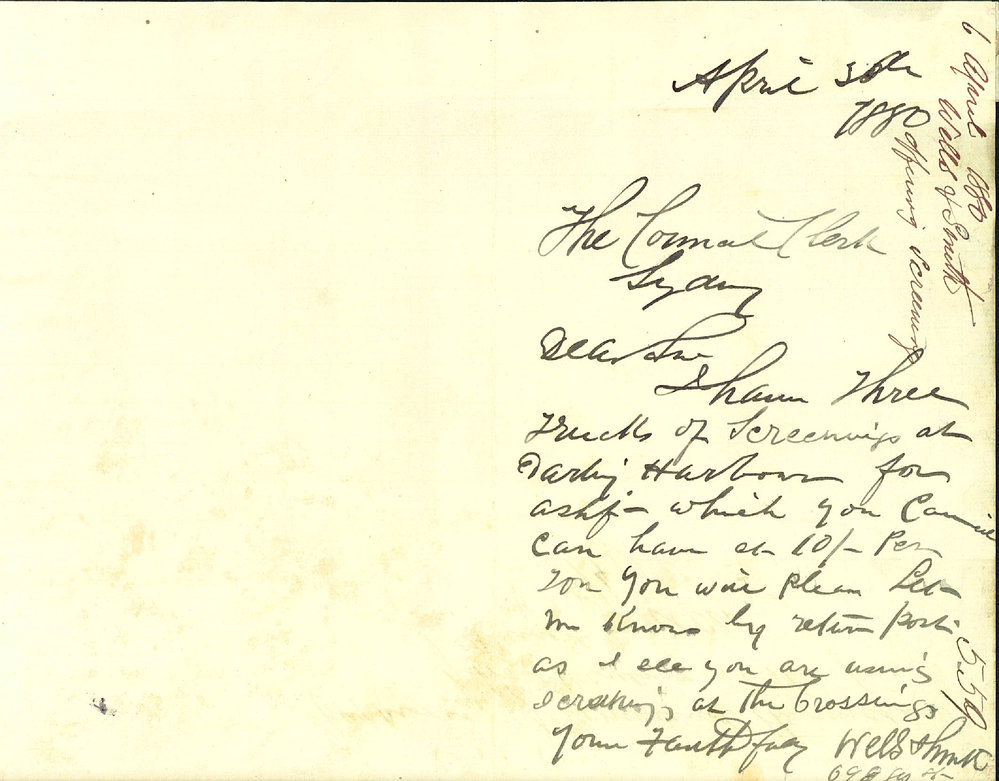 April 30th
1880
The Council Clerk
Sydney
Dear Sir
I have Three
Trucks of Screenings at
Darling Harbour for
which you Council
can have at 10/- Per
Ton You will please Let
me Know by return Post
as I see you are using
screenings at the Crossings
Yours Faithfully Wells & Smith
6 April 1880
Wells & Smith
offering screenings
559